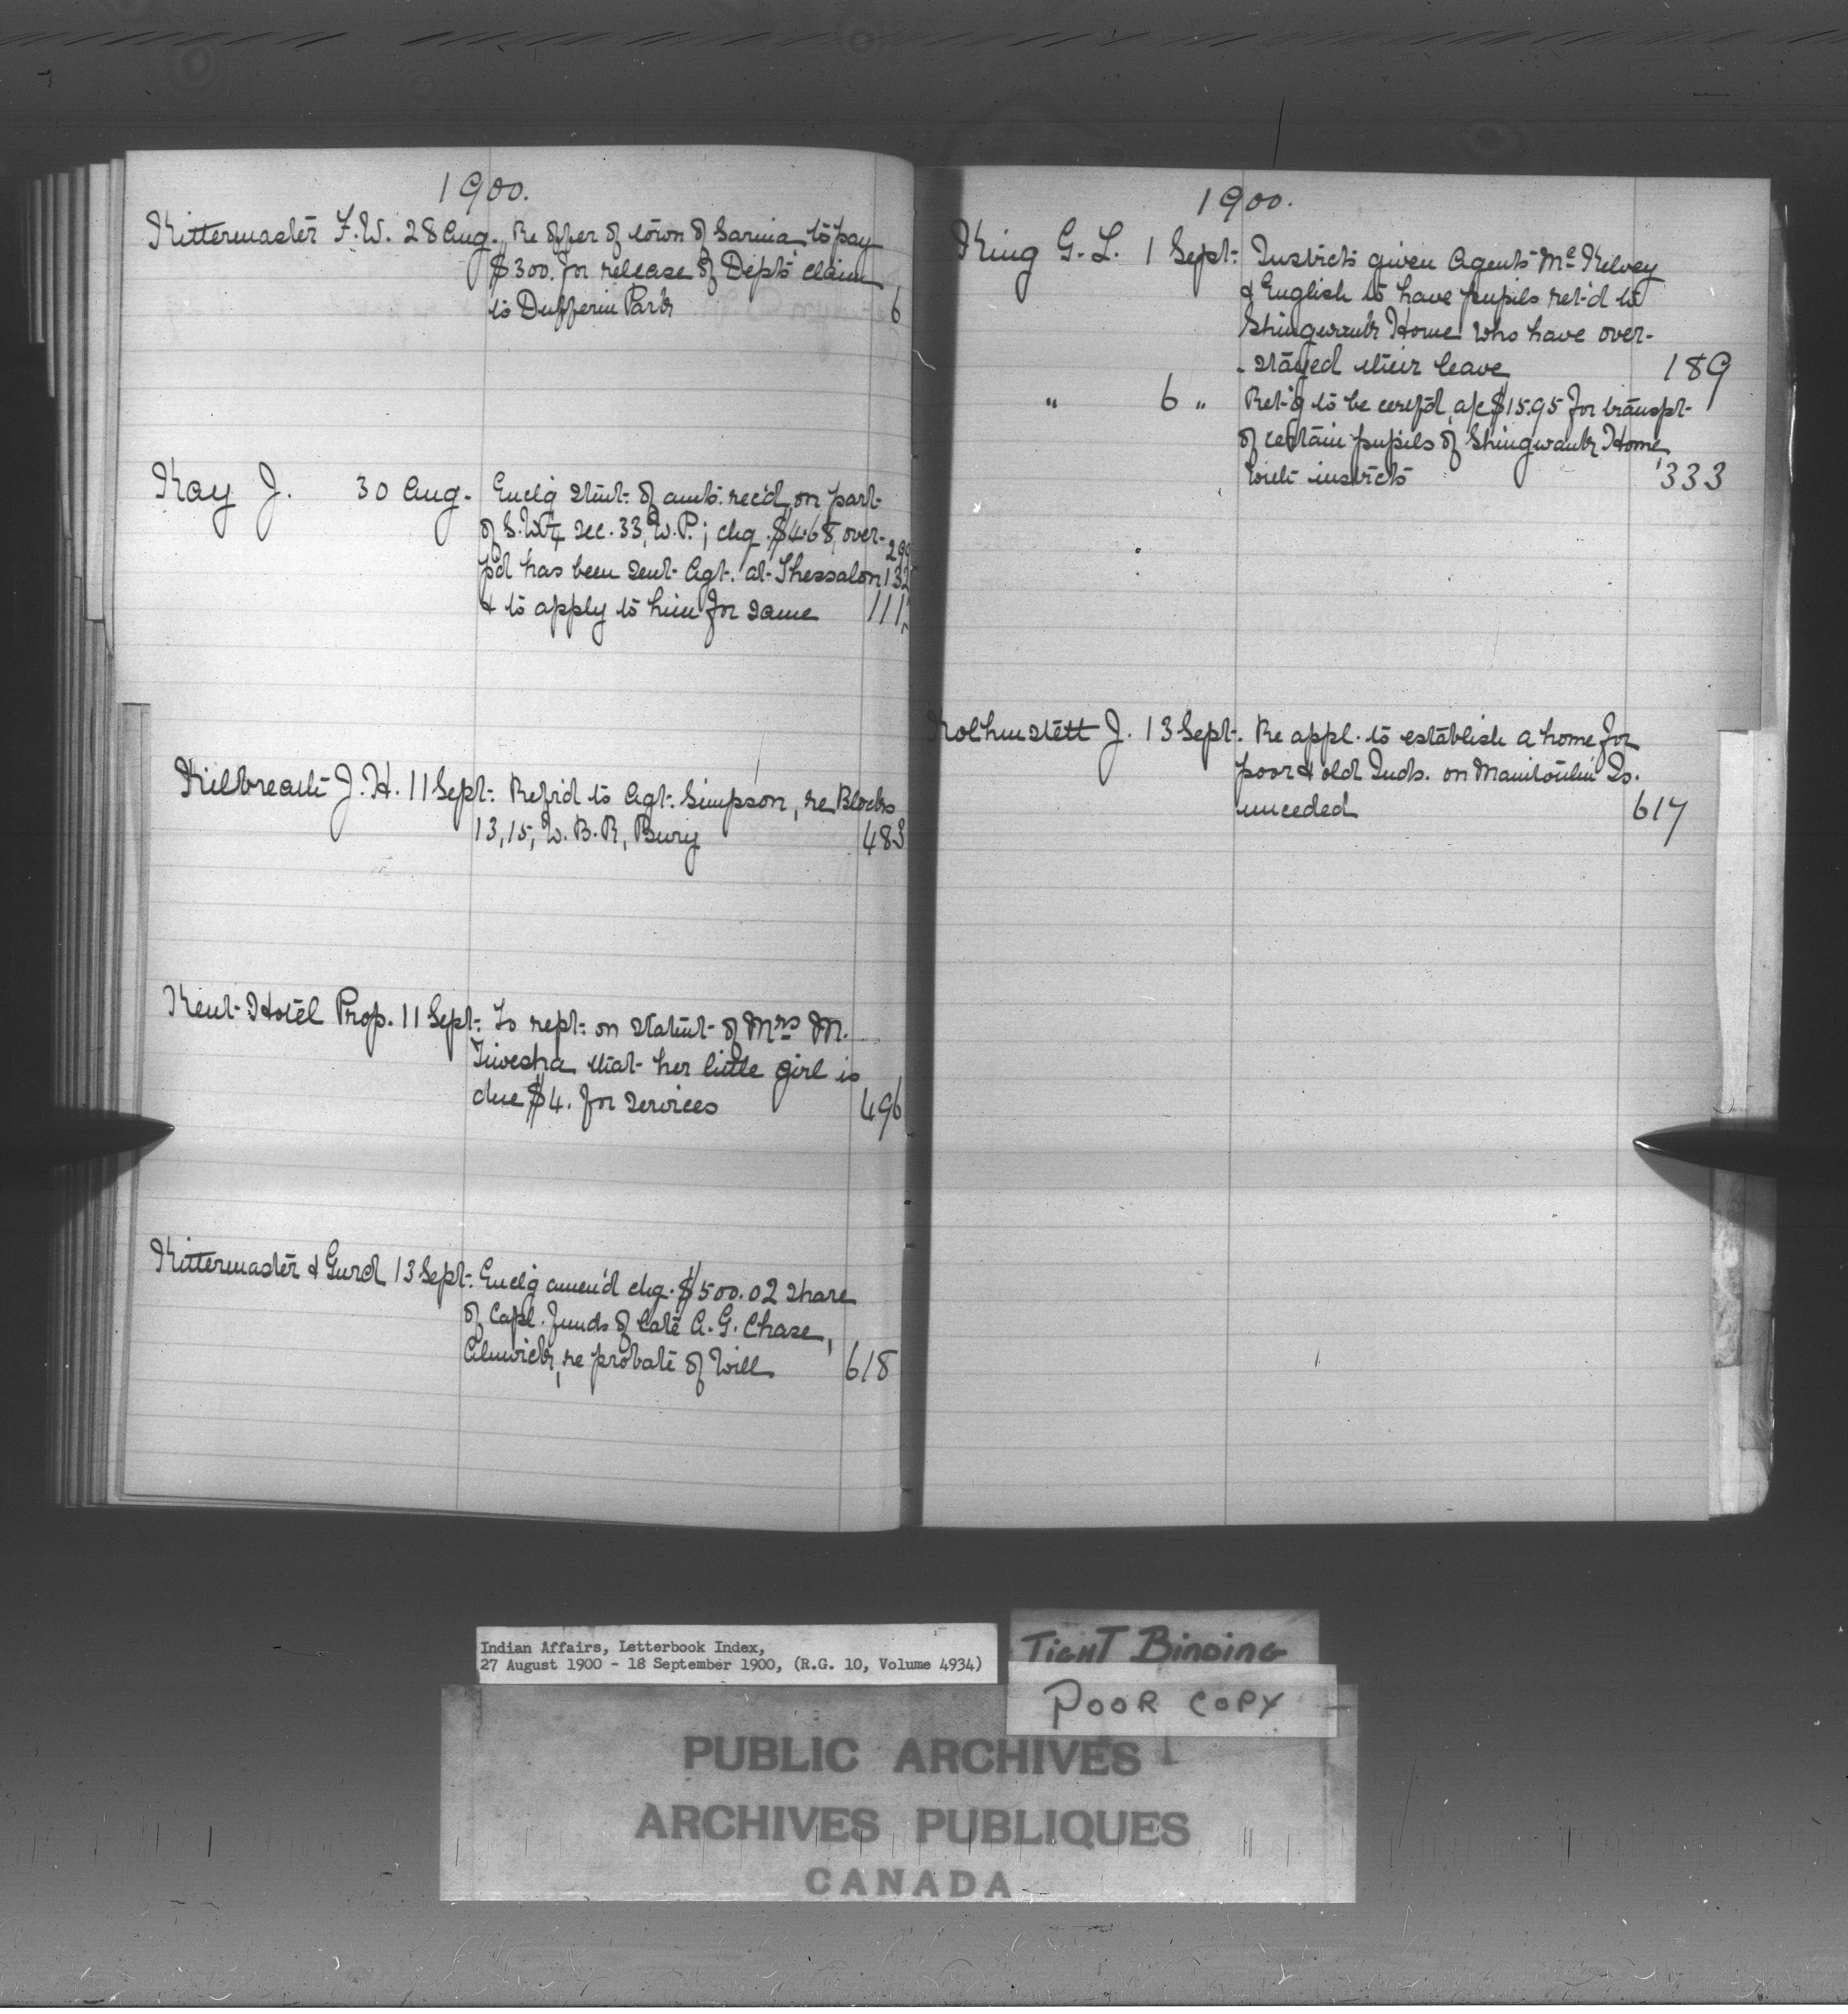 1900.
Kittermaster F.W. 28 Aug. Re offer of town of Sarnia to pay
$300. for release of Dept's claim
to Dufferin Park 6
Kay J. 30 Aug. Enclg stmt. of amts. rec'd on part
of S.W¼ sec. 33, W.P.; chq. $4.68, over-
p'd has been sent Agt. at Thessalon 132
& to apply to him for same 111
Kilbreath J.H. 11 Sept. Refr'd to Agt. Simpson, re Blocks
13, 15, W.B.R, Bury 483
Kent Hotel Prop. 11 Sept. To rept. on statmt of Mrs M.
that her little girl is
due $4. for services 496
Kittermaster & Gurd 13 Sept. Enclg amen'd chq. $500.02 share
of Capl. funds of late A.G. Chase,
Alnwick, re probate of Will 618
1900.
King G.L. 1 Sept. Instrcts given Agents McKelvey
& English to have pupils ret'd to
Shingwauk Home who have over-
-stayed their leave 189
" 6 " Ret'g to be certf'd, a/c $15.95 for transpt.
of certain pupils of Shingwauk Home
with instrcts 333
J. 13 Sept. Re appl. to establish a home for
poor & old Inds. on Manitoulin Is.
unceded 617
Indian Affairs, Letterbook Index,
27 August 1900 - 18 September 1900, (R.G. 10, Volume 4934)
TIGHT BINDING
POOR COPY
PUBLIC ARCHIVES
ARCHIVES PUBLIQUES
CANADA